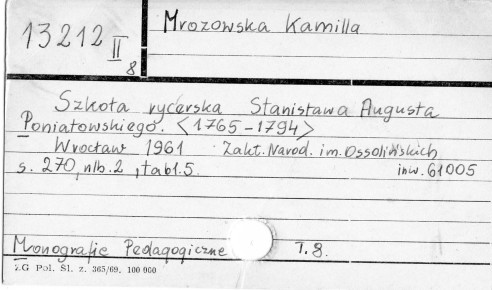 13212 II 8
Mrozowska Kamilla
Szkoła rycerska Stanisława Augusta
Poniatowskiego. <1765-1794>
Wrocław 1961 Zakł. Narod. im. Ossolińskich
s. 270, nlb. 2, tabl. 5. inw. 61005
Monografie Pedagogiczne T. 8.
ZG Pol. Śl. z. 365/69. 100 000